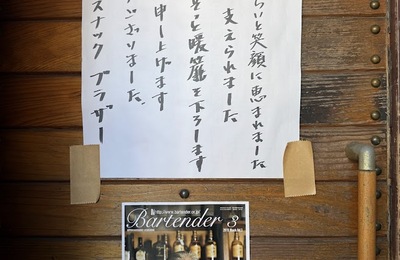 らいと笑顔に恵まれました
支えられました
そっと暖簾を下ろします
申し上げます
ございました。
スナック ブラザー
http://www.bartender.or.jp/
Bartender 3